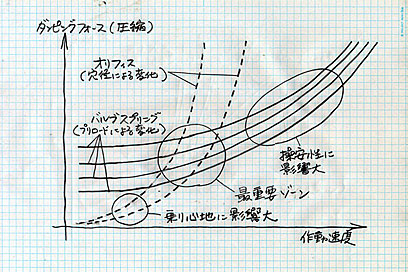 ダンピングフォース(圧縮)
オリフィス
(穴径による変化)
バルブスプリング
(プリロードによる変化)
操安性に
影響大
最重要ゾーン
乗り心地に影響大
作動速度